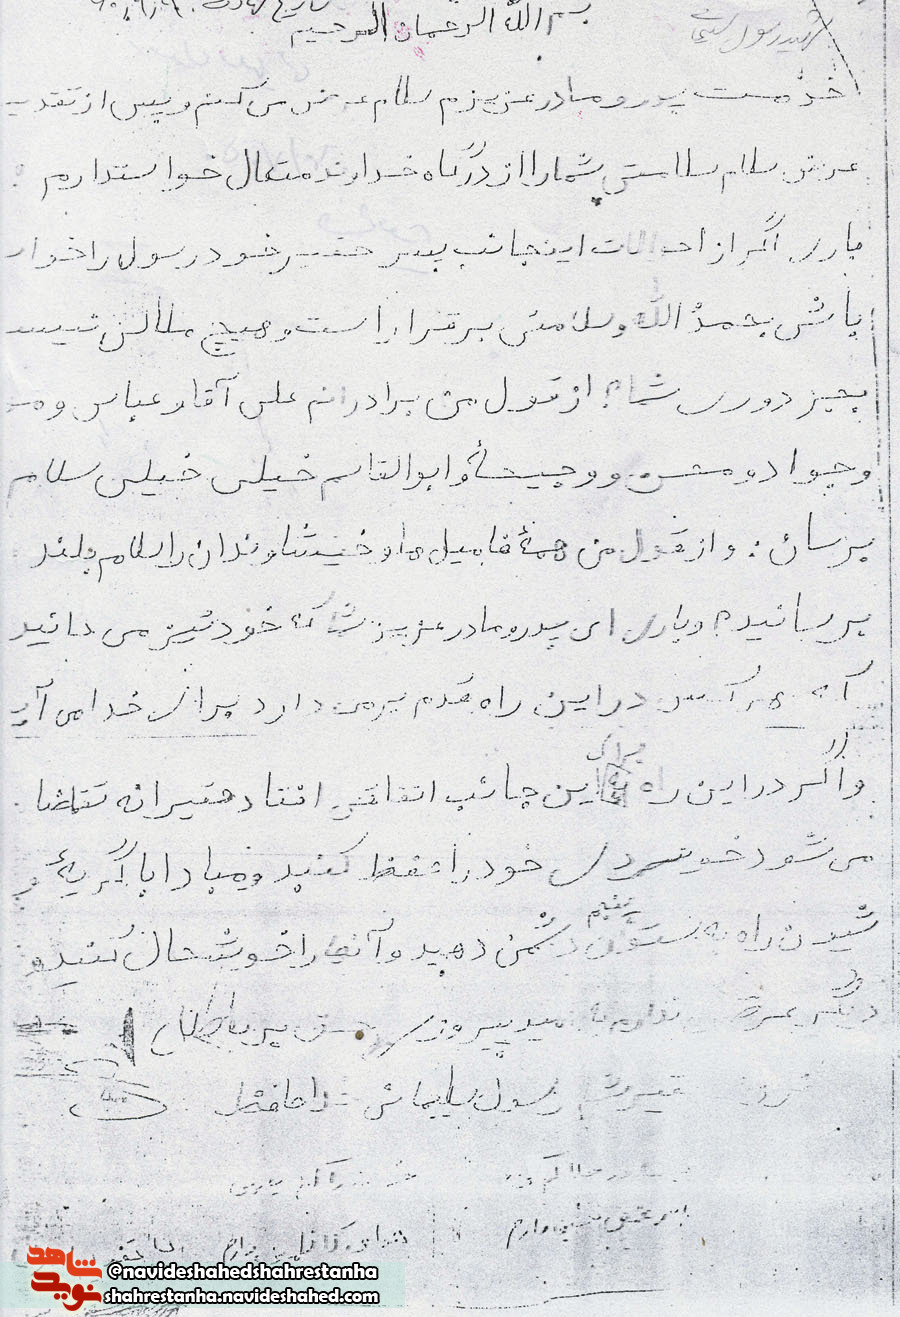 بسم الله الرحمان الرحیم
شهید رسول سلیمانی
خدمت پدر و مادر عزیزم سلام عرض می کنم و پس از تقدیم
عرض سلام سلامتی شما را از درگاه خداوند متعال خواستدارم
باری اگر از احوالات اینجانب پسر حقیر خود رسول را خوار
باشی بحمدُ الله و سلامتی برقرار است و هیچ ملالی نیست
بجیز دوری شما از قول من برادرانم علی آقا و عباس و
و جواد و محسن و وجیحهٔ و ابوالقاسم خیلی خیلی سلام
برسان . و از قول من همهٔ فامیل ها و خیشاوندان را سلام بلند
برسانید و باری ای پدر و مادر عزیز شما که خود نیز می دانید
که هر کسی در این راه قدم برمی دارد برای خدا می آید
و اگر در این راه برای این جانب اتفاقی افتاد حقیرانه تقاضا
می شود خونسردی خود را حفظ کنید و مبادا با گریهٔ و
شیون راه به ستون پنجم دشمن دهید و آنها را خوشحال کنید و
دیگر عرضی ندارم به امید پیروزی حق بر باطل
رسول سلیمانی خداحافظ
@navideshahedshahrestanha
shahrestanha.navideshahed.com
نوید شاهد